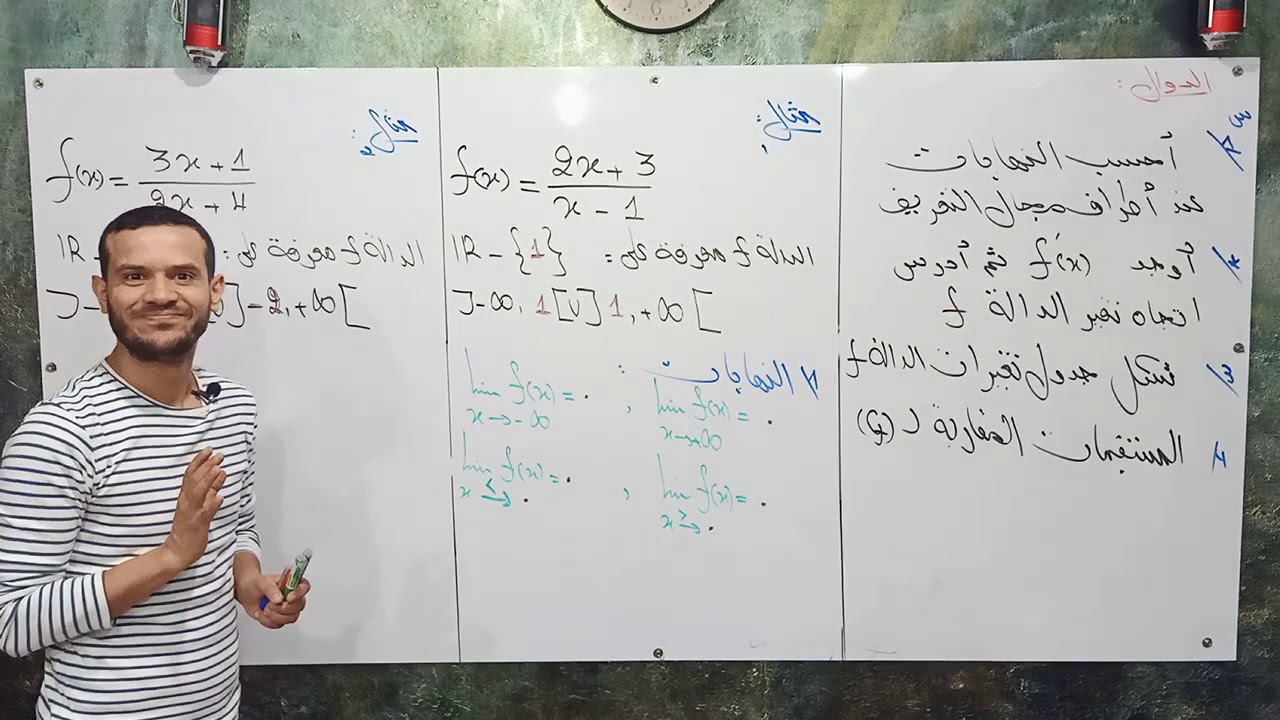 الدوال:
س1/ أحسب النهايات
عند أطراف مجال التعريف
2/ أوجد f'(x) ثم أدرس
اتجاه تغير الدالة f
3/ شكل جدول تغيرات الدالة f
4/ المستقيمات المقاربة لـ (Cf)
مثال1:
f(x) = \frac{2x+3}{x-1}
الدالة f معرفة على: IR - {1}
]-∞, 1[ U ]1, +∞[
1/ النهايات:
lim f(x) = .
x → -∞
, lim f(x) = .
x → +∞
lim f(x) = .
x \xrightarrow{<} .
, lim f(x) = .
x \xrightarrow{>} .
مثال2:
f(x) = \frac{3x+1}{2x+4}
الدالة f معرفة على: IR -
]- [U]-2, +∞[